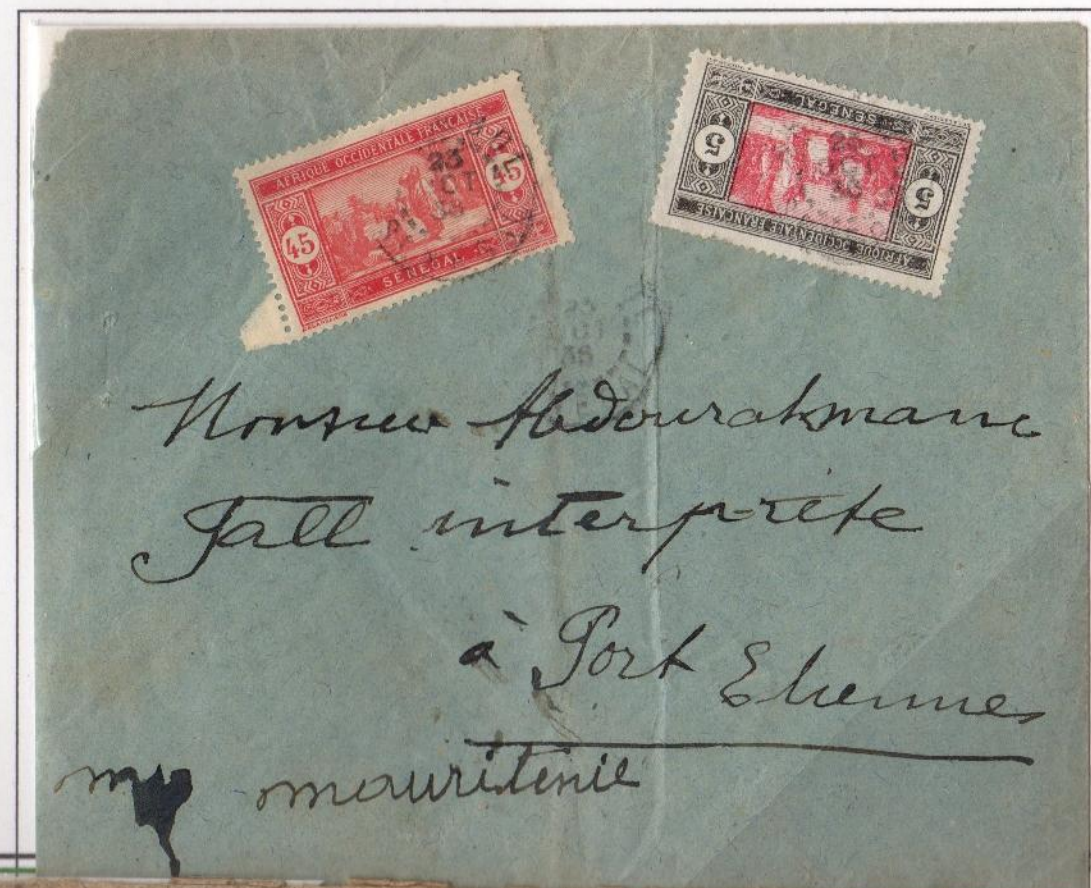 AFRIQUE OCCIDENTALE FRANÇAISE
45 45
SENEGAL
SENEGAL
5 5
AFRIQUE OCCIDENTALE FRANÇAISE
23
OCT
Monsieur Abdourahmane
Fall interprète
à Port Etienne
mauritinie